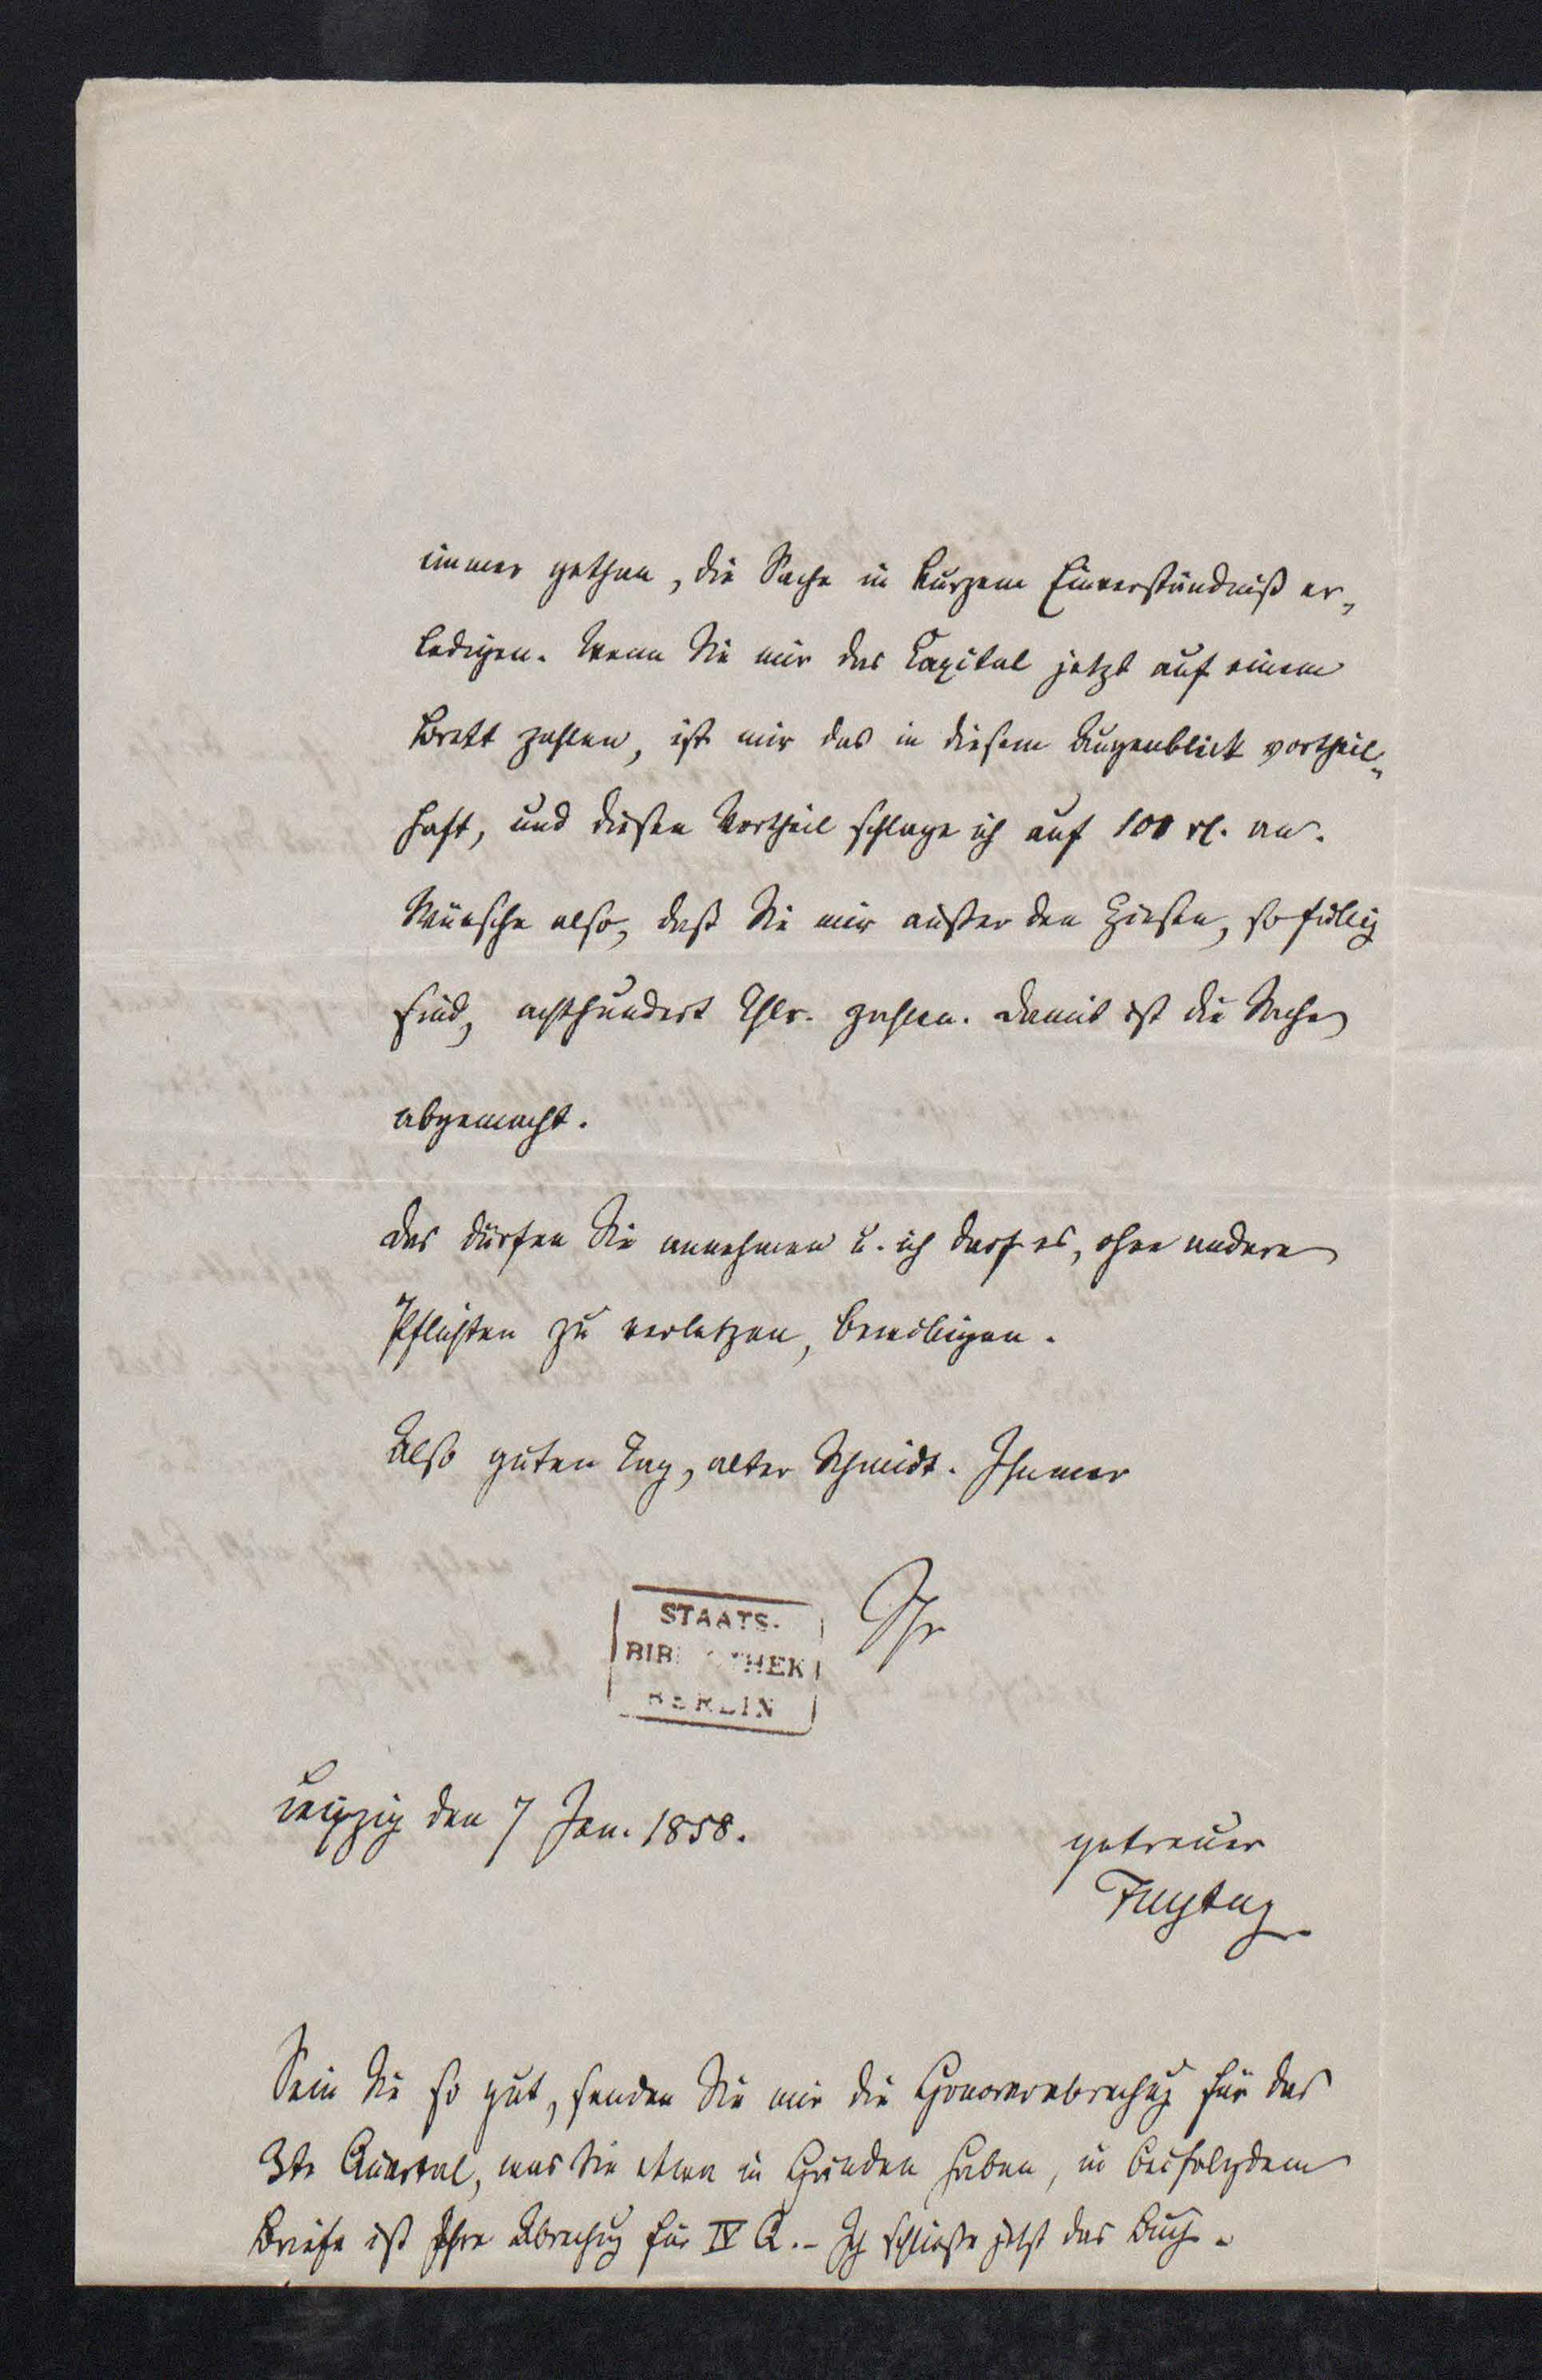 immer gethan, die Sache in kurzem Einverständniß er„
ledigen. Wenn Sie mir das Capital jetzt auf einem
Brett zahlen, ist mir das in diesem Augenblick vortheil„
haft, und diesen Vortheil schlage ich auf 100 rl. an.
Wünsche also, daß Sie mir außer den Zinsen, so fällig
sind, achthundert Thlr. zahlen. Damit ist die Sache
abgemacht.
Das dürfen Sie annehmen u. ich darf es, ohne andere
Pflichten zu verletzen, bewilligen.
Also guten Tag, alter Schmidt. Immer
Ihr
STAATS-
BIBLIOTHEK
BERLIN
Leipzig den 7 Jan. 1858.
getreuer
Freytag
Sein Sie so gut, senden Sie mir die Honorarabrechug für das
3te Quartal, was Sie etwa in Händen haben, in beifolgdem
Briefe ist Ihre Abrechug für IV Q. – Ich schließe jetzt das Buch.